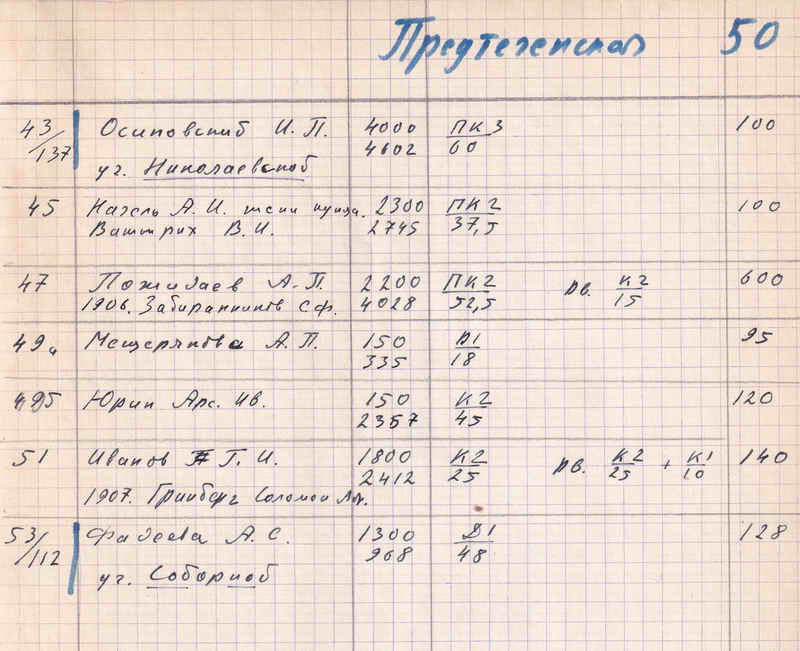 Предтеченская 50
43/137 Осиповский И. П. 4000 ПК3 100
4602 60
уг. Николаевской
45 Нагель А. И. 2300 ПК2 100
Ваштрих В. И. 2745 37,5
47 Пожидаев А. П. 2200 ПК2 дв. К2 600
1906. Забиранников Сф. 4028 52,5 15
49а Мещерякова А. П. 150 Д1 95
335 18
49б Юрин Арс. Ив. 150 К2 120
2357 45
51 Иванов Г. И. 1800 К2 дв. К2 + К1 140
2412 25 25 10
1907. Гринберг Соломон
53/112 Фадеева А. С. 1300 Д1 128
968 48
уг. Соборной